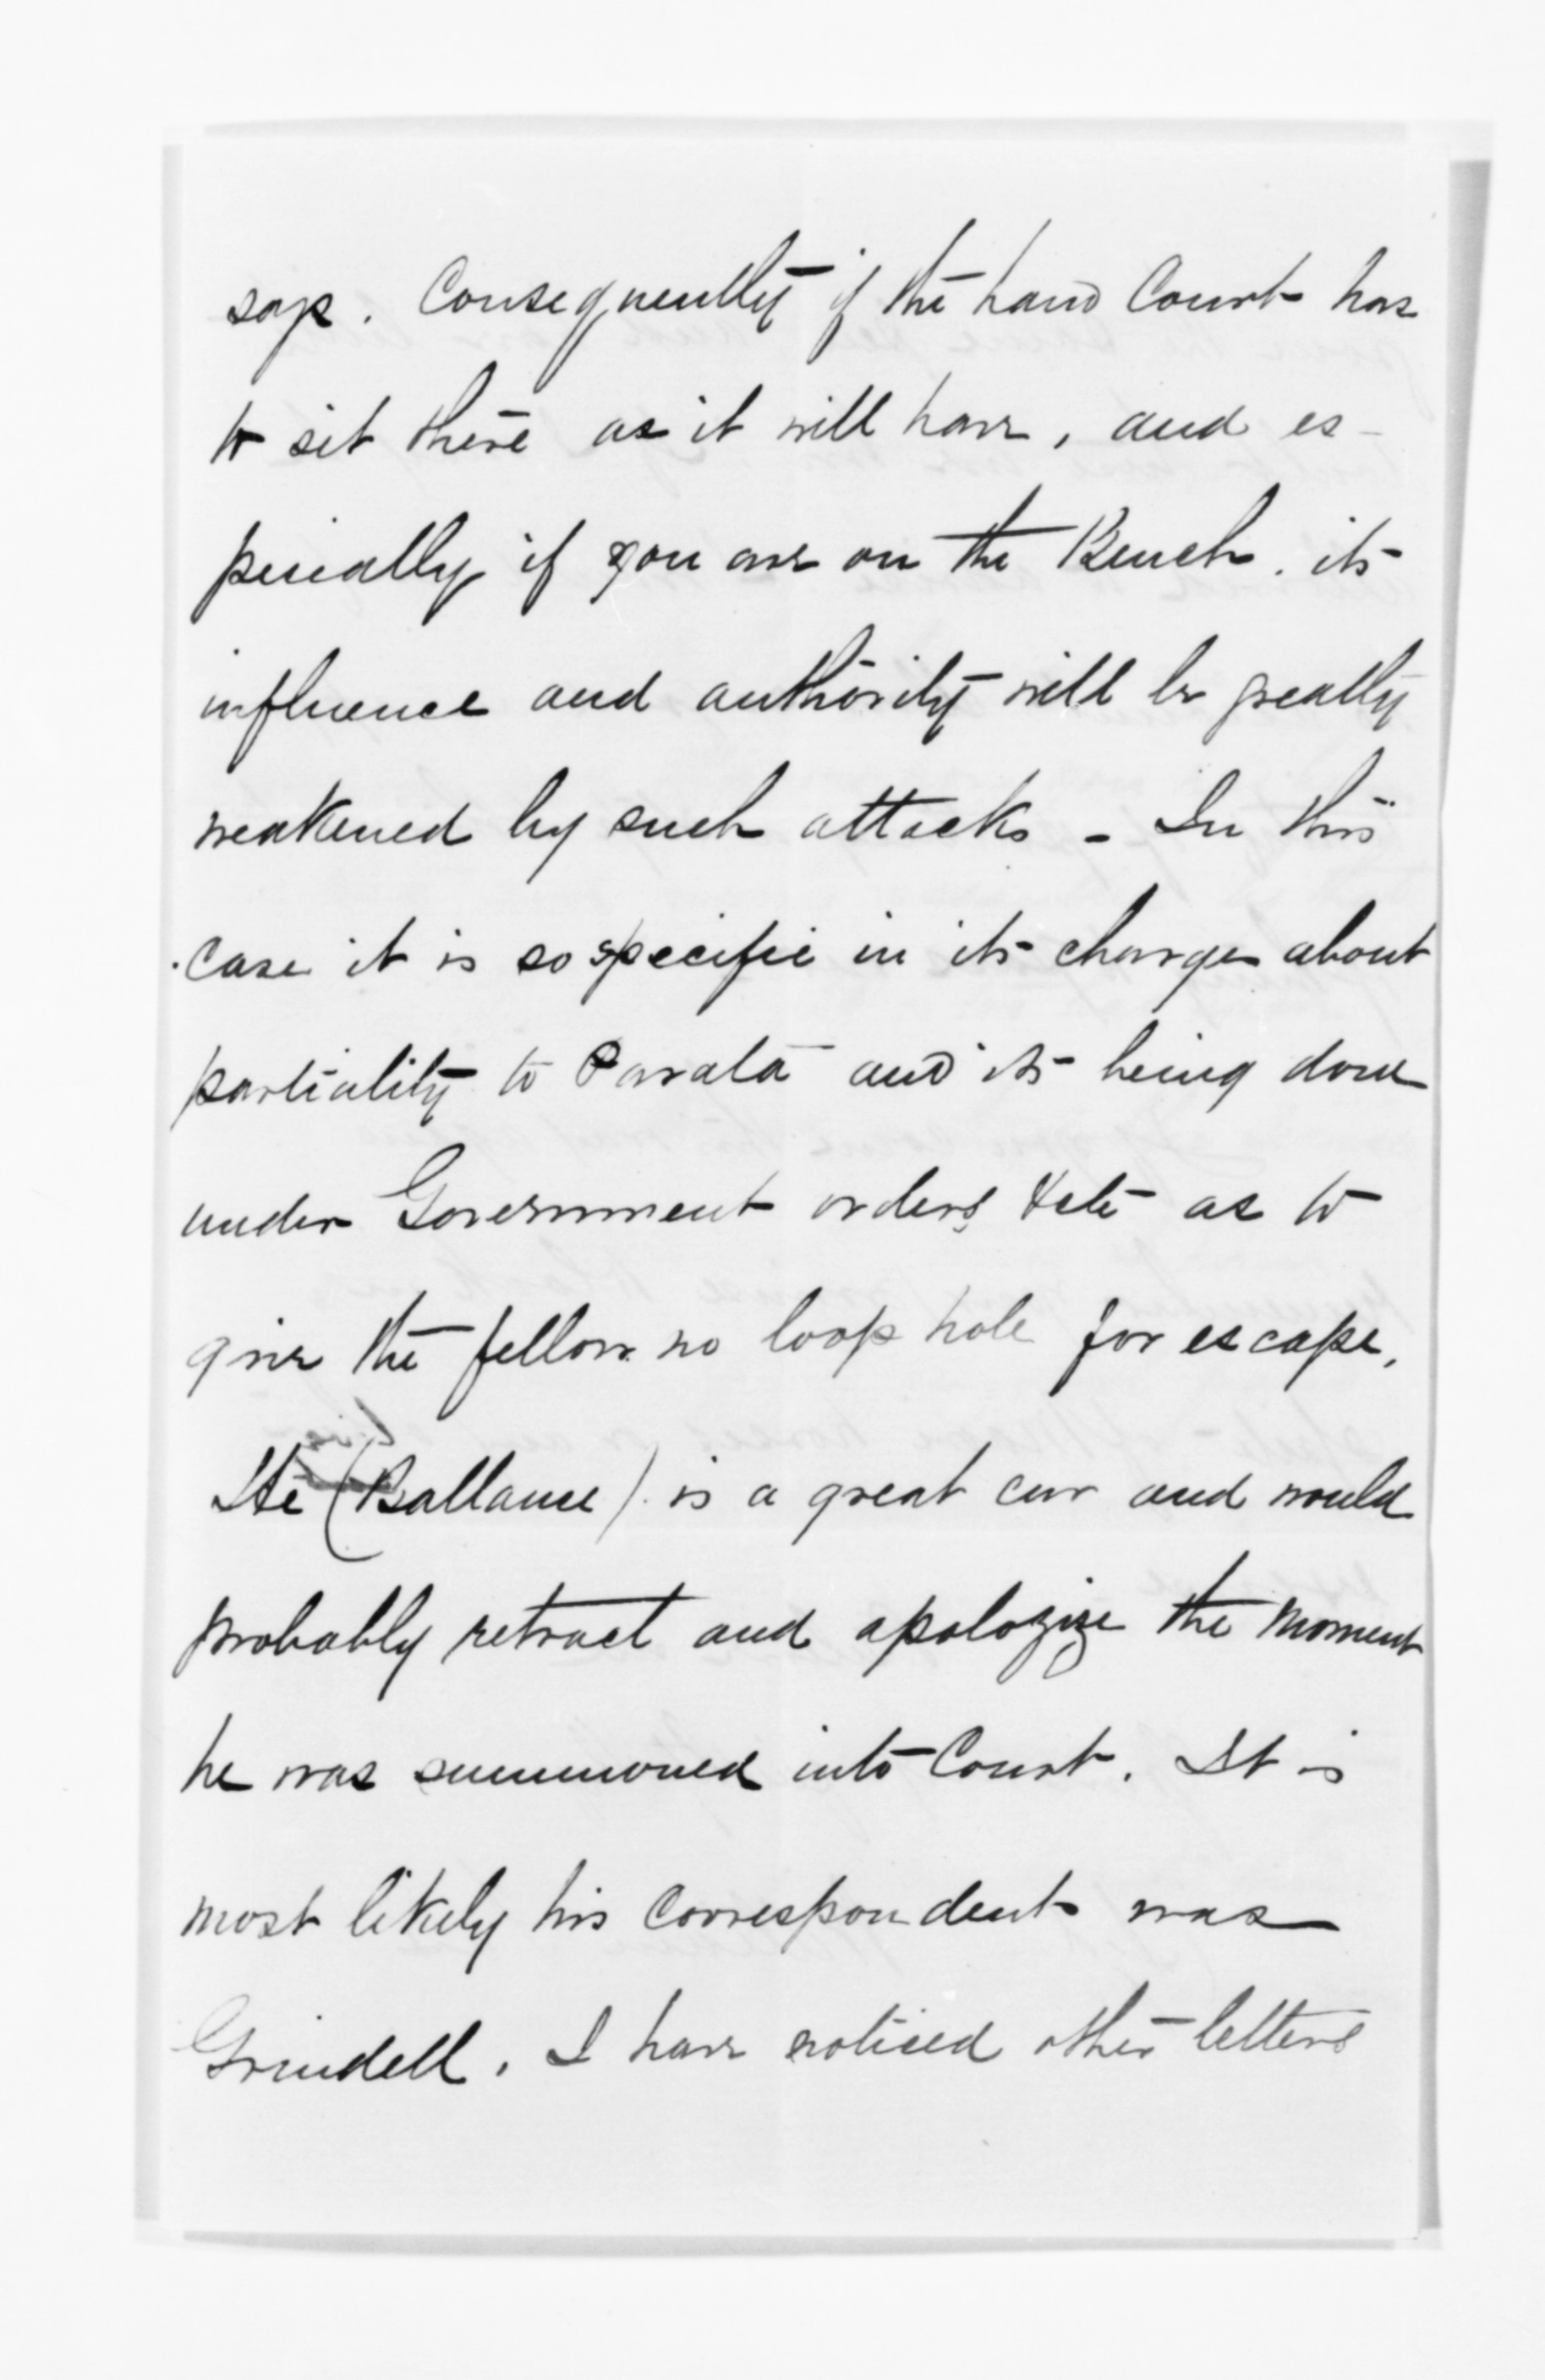 says. Consequently if the Land Court has
to sit there as it will have, and es-
pecially if you are on the Bench. its
influence and authority will be greatly
weakened by such attacks - In this
case it is so specific in its charges about
partiality to Parata and its being done
under Government orders &ct as to
give the fellow no loop hole for escape,
He (Ballance) is a great cur and would
probably retract and apologize the moment
he was summoned into Court. It is
most likely his Correspondent was
Grindell. I have noticed other letters